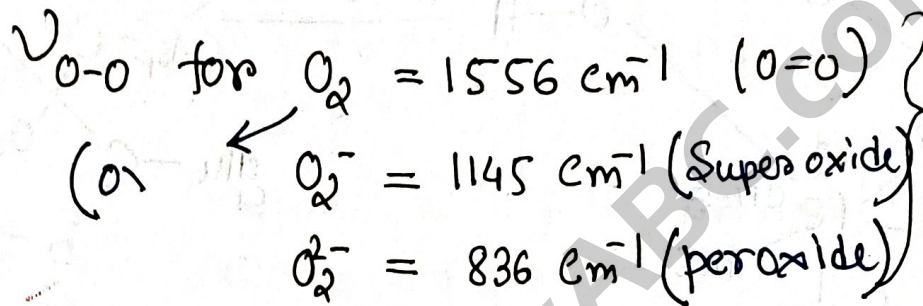 νO-O for O₂ = 1556 cm⁻¹ (O=O)
(O O₂⁻ = 1145 cm⁻¹ (Superoxide)
O₂²⁻ = 836 cm⁻¹ (peroxide)
ABC.co